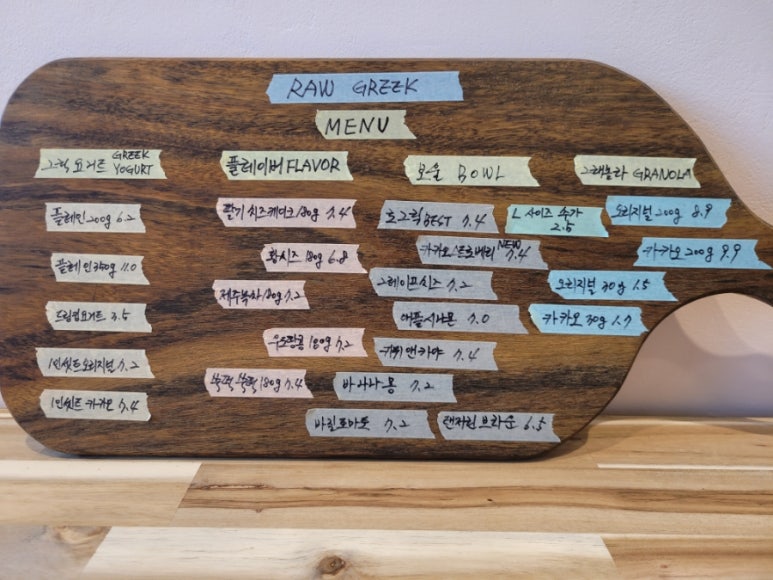 RAW GREEK
MENU
그릭요거트 GREEK YOGURT
플레인 200g 6.2
플레인 350g 11.0
드링킹요거트 3.5
1인세트 오리지널 7.2
1인세트 카카오 7.4
플레이버 FLAVOR
딸기 치즈케이크 180g 7.4
황치즈 180g 6.8
제주녹차 180g 7.2
우도땅콩 180g 7.2
쑥떡쑥떡 180g 7.4
보울 BOWL
로그릭 BEST 7.4
카카오 스트로베리 NEW 7.4
그레이프시즈 7.2
애플시나몬 7.0
키위앤카야 7.4
바나나몽 7.2
바질토마토 7.2
랜치립브라운 6.5
L사이즈 추가
2.5
그래놀라 GRANOLA
오리지널 200g 8.9
카카오 200g 9.9
오리지널 30g 1.5
카카오 30g 1.7